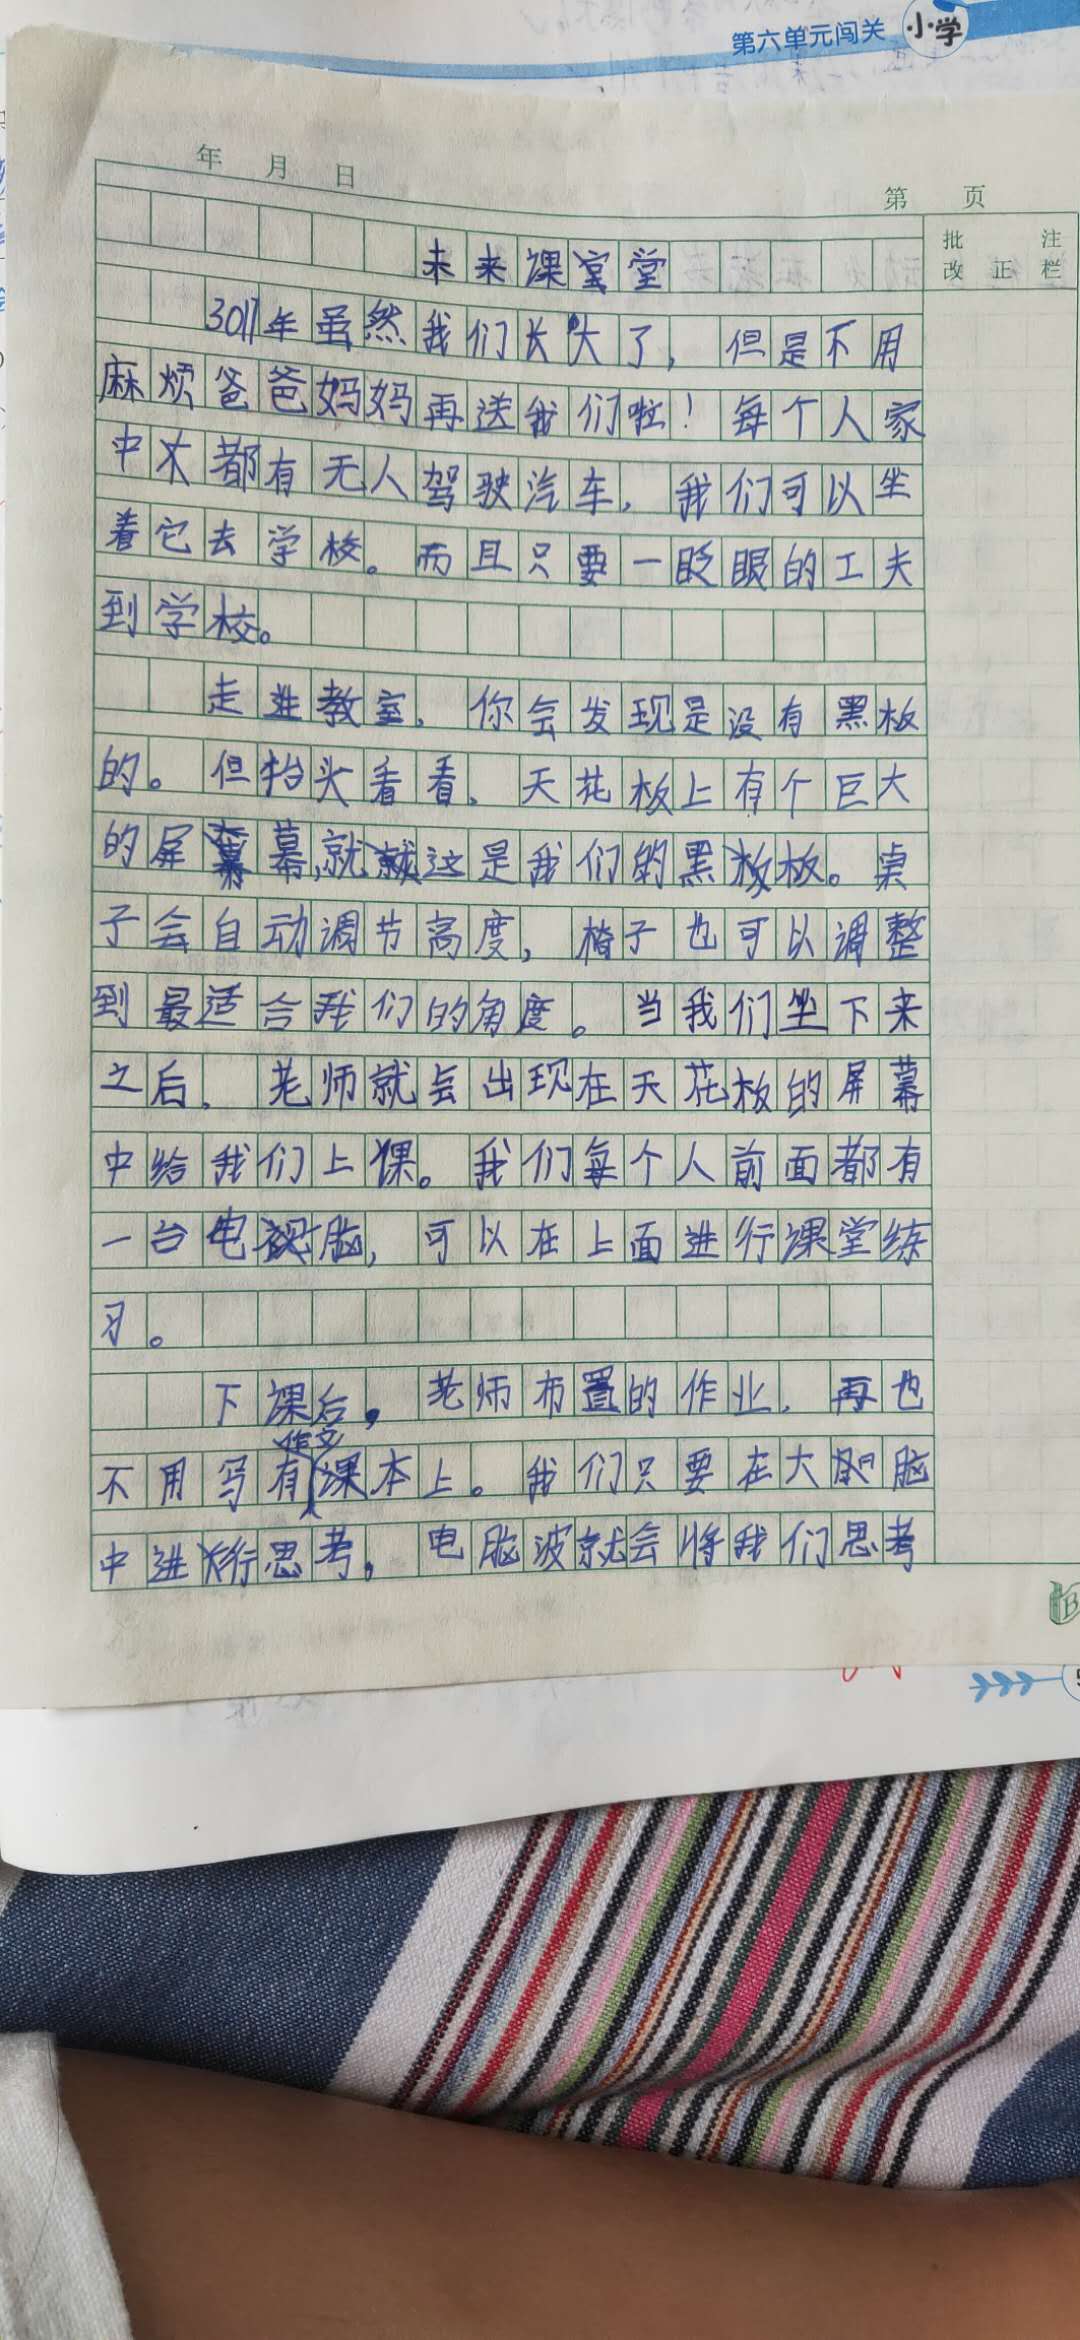 第六单元闯关 小学
年 月 日
第 页
批注
改正栏
未来课堂
3017年虽然我们长大了，但是不用
麻烦爸爸妈妈再送我们啦！每个人家
中都有无人驾驶汽车，我们可以坐
着它去学校。而且只要一眨眼的工夫
到学校。
走进教室，你会发现是没有黑板
的。但抬头看看，天花板上有个巨大
的屏幕，就这是我们的黑板。桌
子会自动调节高度，椅子也可以调整
到最适合我们的角度。当我们坐下来
之后，老师就会出现在天花板的屏幕
中给我们上课。我们每个人前面都有
一台电脑，可以在上面进行课堂练
习。
下课后，老师布置的作业，再也
作文
不用写有课本上。我们只要在大脑
中进行思考，电脑波就会将我们思考